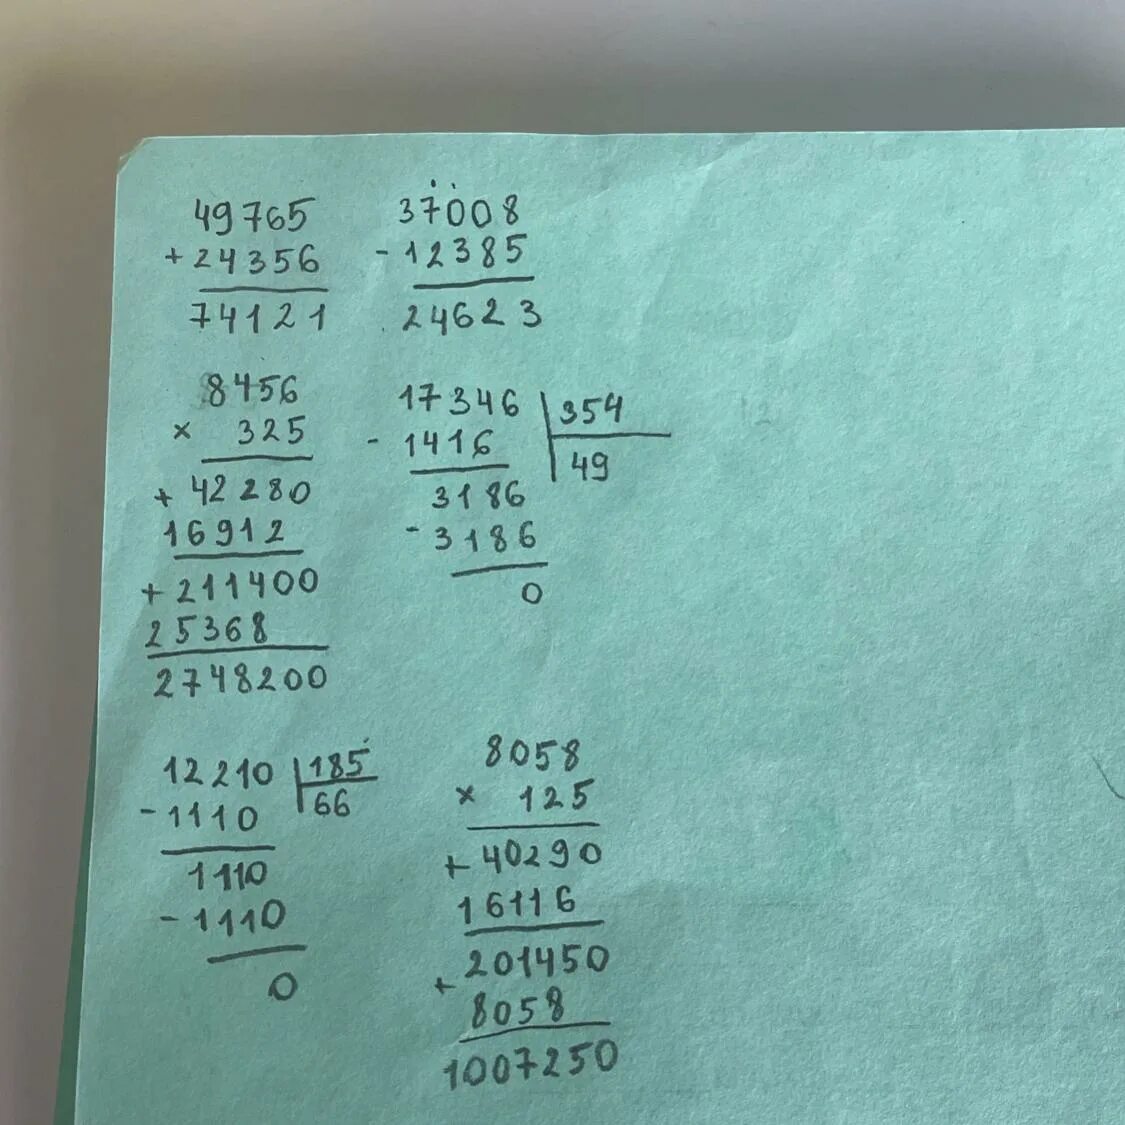 49765
+ 24356
74121
37008
- 12385
24623
8456
× 325
+ 42280
16912
+ 211400
25368
2748200
17346 | 354
- 1416 | 49
3186
- 3186
0
12210 | 185
- 1110 | 66
1110
- 1110
0
8058
× 125
+ 40290
16116
201450
+ 8058
1007250